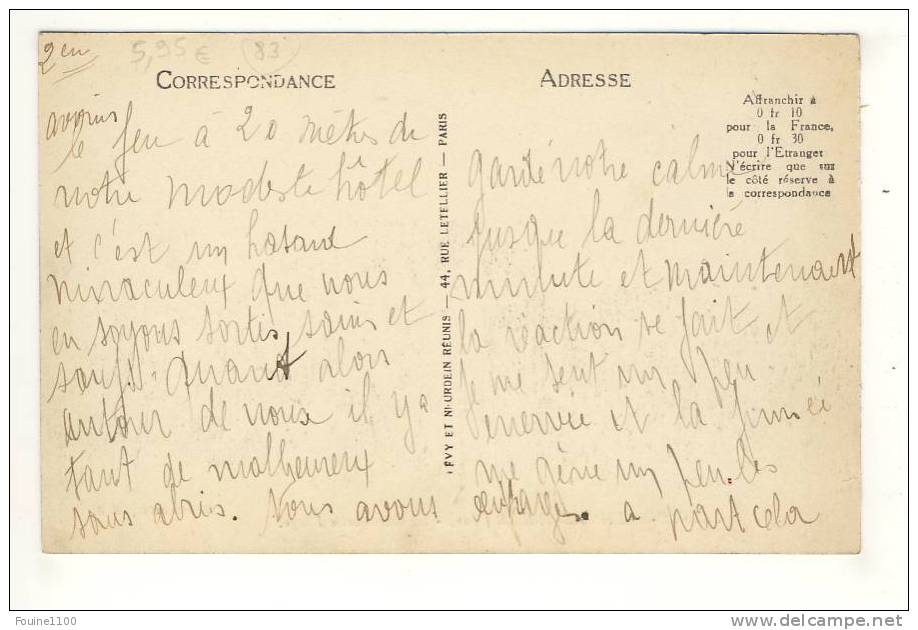 2em
5,95 €
83
CORRESPONDANCE
avons
le feu à 20 mètres de
notre modeste hôtel
et c'est un hasard
miraculeux que nous
en soyons sortis sains et
saufs. Quand alors
autour de nous il y a
tant de malheureux
sans abris. Nous avons
FVY ET NEURDEIN RÉUNIS — 44, RUE LETELLIER — PARIS
ADRESSE
Affranchir à
0 fr 10
pour la France,
0 fr 30
pour l'Etranger
N'écrire que sur
le côté réservé à
la correspondance
gardé notre calme
jusque la dernière
minute et maintenant
la réaction se fait et
je me sent un peu
enervée et la fumée
me gène un peu les
a part cela
Foune1100
www.delcampe.net